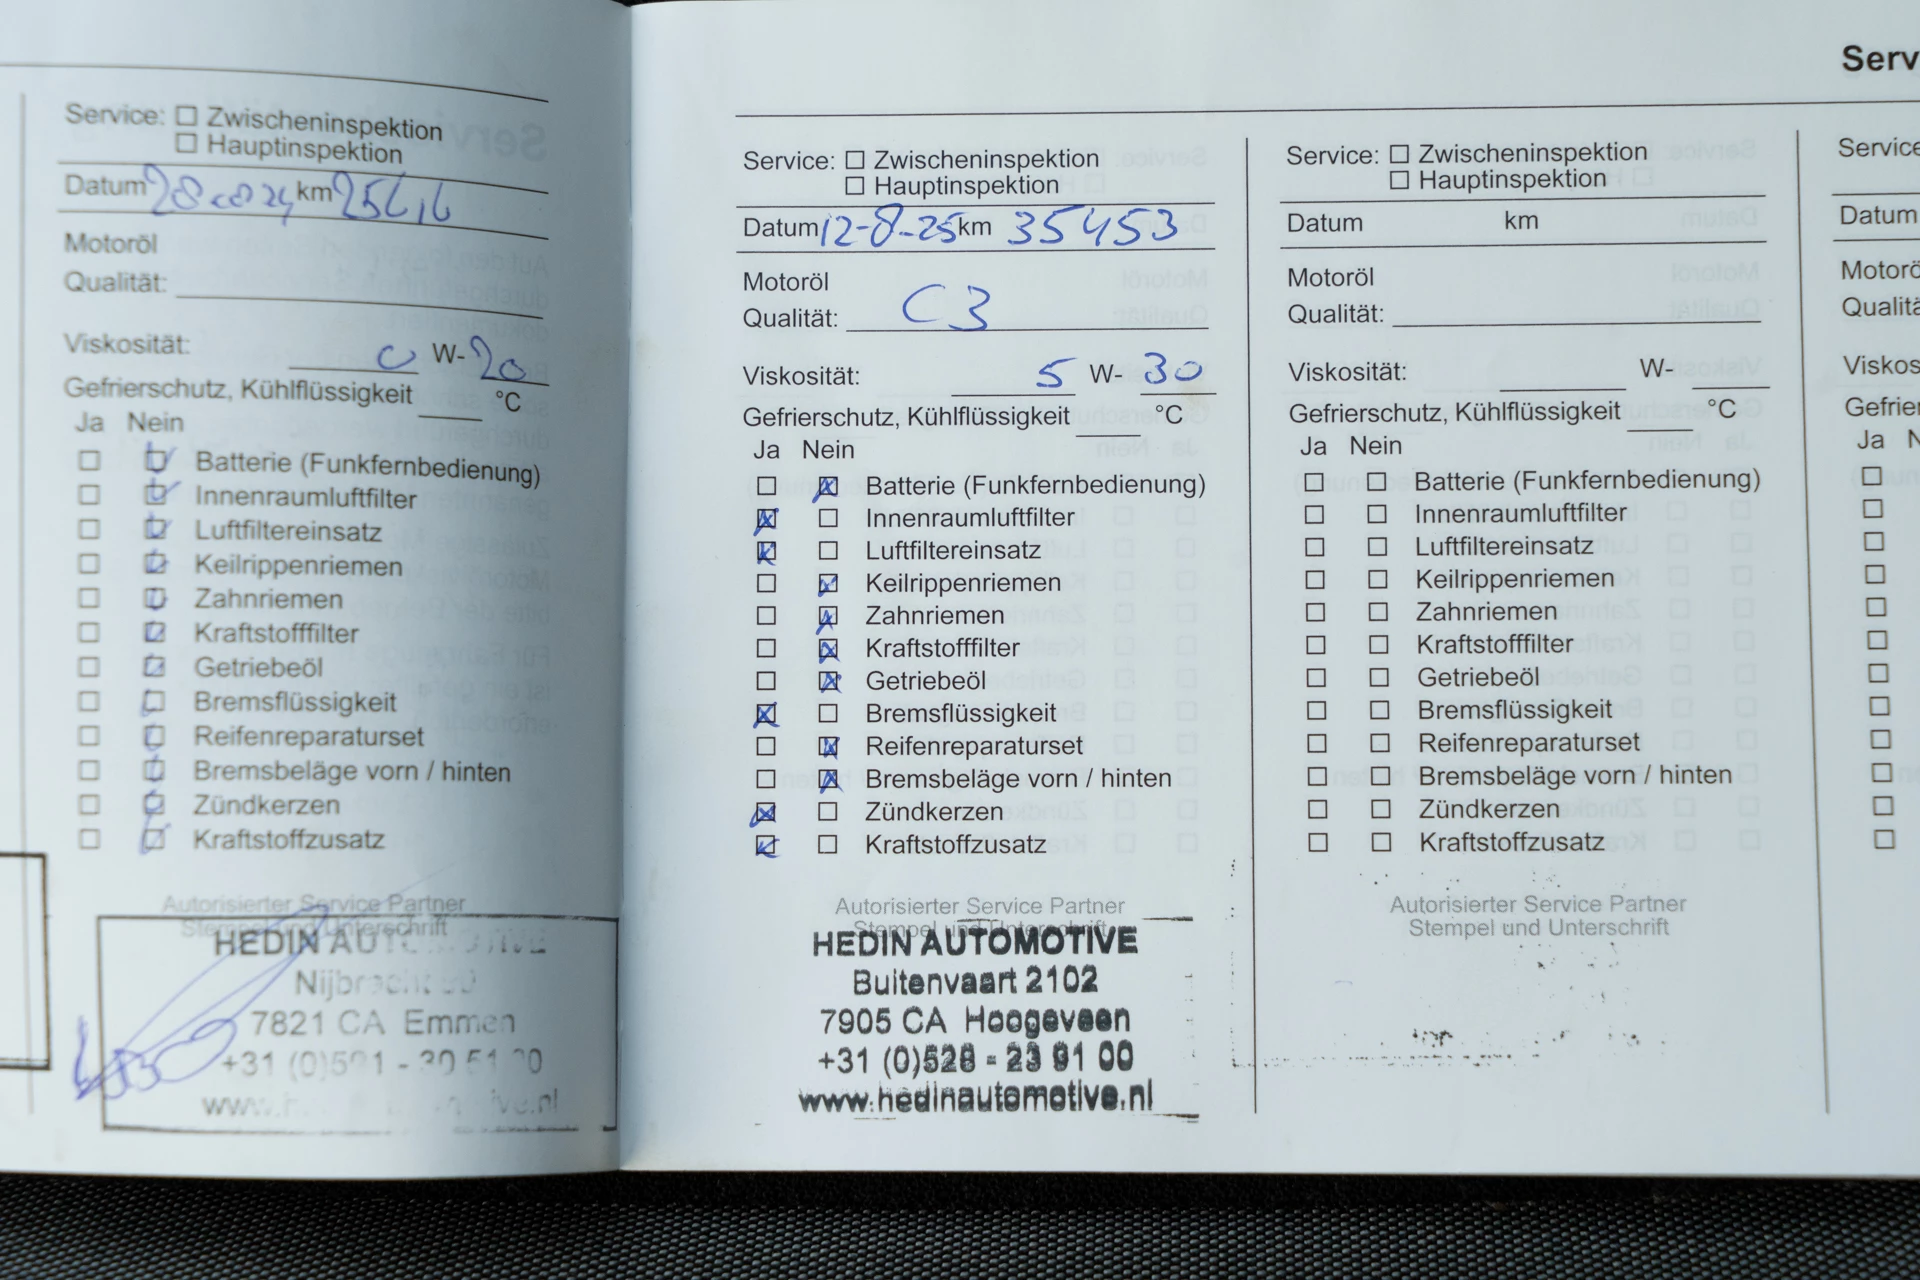 Service: ☐ Zwischeninspektion
☐ Hauptinspektion
Datum km
Motoröl
Qualität:
Viskosität: 0 W-20
Gefrierschutz, Kühlflüssigkeit °C
Ja Nein
Batterie (Funkfernbedienung)
Innenraumluftfilter
Luftfiltereinsatz
Keilrippenriemen
Zahnriemen
Kraftstofffilter
Getriebeöl
Bremsflüssigkeit
Reifenreparaturset
Bremsbeläge vorn / hinten
Zündkerzen
Kraftstoffzusatz
Autorisierter Service Partner
Stempel und Unterschrift
HEDIN AUTOMOTIVE
7821 CA Emmen
Serv
Service: ☐ Zwischeninspektion
☐ Hauptinspektion
Datum 12-8-25 km 35453
Motoröl
Qualität: C3
Viskosität: 5 W-30
Gefrierschutz, Kühlflüssigkeit °C
Ja Nein
Batterie (Funkfernbedienung)
Innenraumluftfilter
Luftfiltereinsatz
Keilrippenriemen
Zahnriemen
Kraftstofffilter
Getriebeöl
Bremsflüssigkeit
Reifenreparaturset
Bremsbeläge vorn / hinten
Zündkerzen
Kraftstoffzusatz
Autorisierter Service Partner
Stempel und Unterschrift
HEDIN AUTOMOTIVE
Buitenvaart 2102
7905 CA Hoogeveen
+31 (0)528 - 23 91 00
www.hedinautomotive.nl
Service: ☐ Zwischeninspektion
☐ Hauptinspektion
Datum km
Motoröl
Qualität:
Viskosität: W-
Gefrierschutz, Kühlflüssigkeit °C
Ja Nein
Batterie (Funkfernbedienung)
Innenraumluftfilter
Luftfiltereinsatz
Keilrippenriemen
Zahnriemen
Kraftstofffilter
Getriebeöl
Bremsflüssigkeit
Reifenreparaturset
Bremsbeläge vorn / hinten
Zündkerzen
Kraftstoffzusatz
Autorisierter Service Partner
Stempel und Unterschrift
Service
Datum
Motorö
Qualitä
Viskos
Gefrier
Ja N